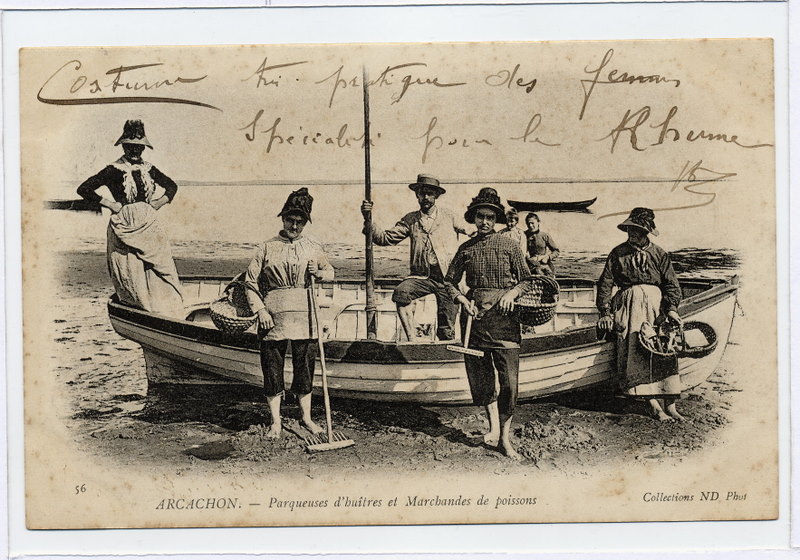 Costume très pratique des femmes
Spécialité pour le Rhume
56
ARCACHON. — Parqueuses d'huîtres et Marchandes de poissons
Collections ND Phot